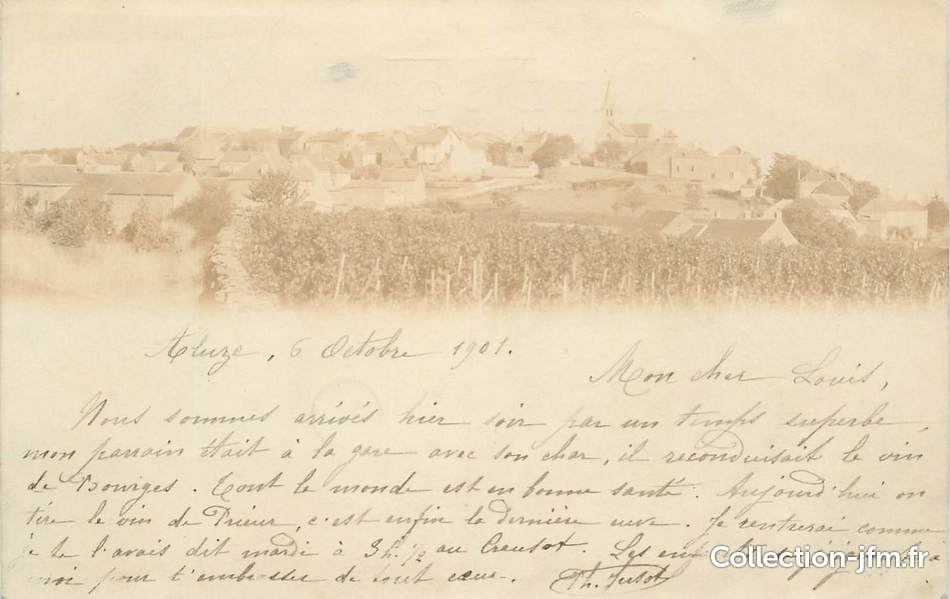 Aluze, 6 Octobre 1901.
Mon cher Louis,
Nous sommes arrivés hier soir par un temps superbe,
mon parrain était à la gare avec son char, il reconduisait le vin
de Bourges. Tout le monde est en bonne santé. Aujourd'hui on
tire le vin de Prieur, c'est enfin la dernière cuve. Je rentrerai comme
je te l'avais dit mardi à 3h ½ au Creusot. Les
moi pour t'embrasser de tout cœur. Th.
Collection-jfm.fr